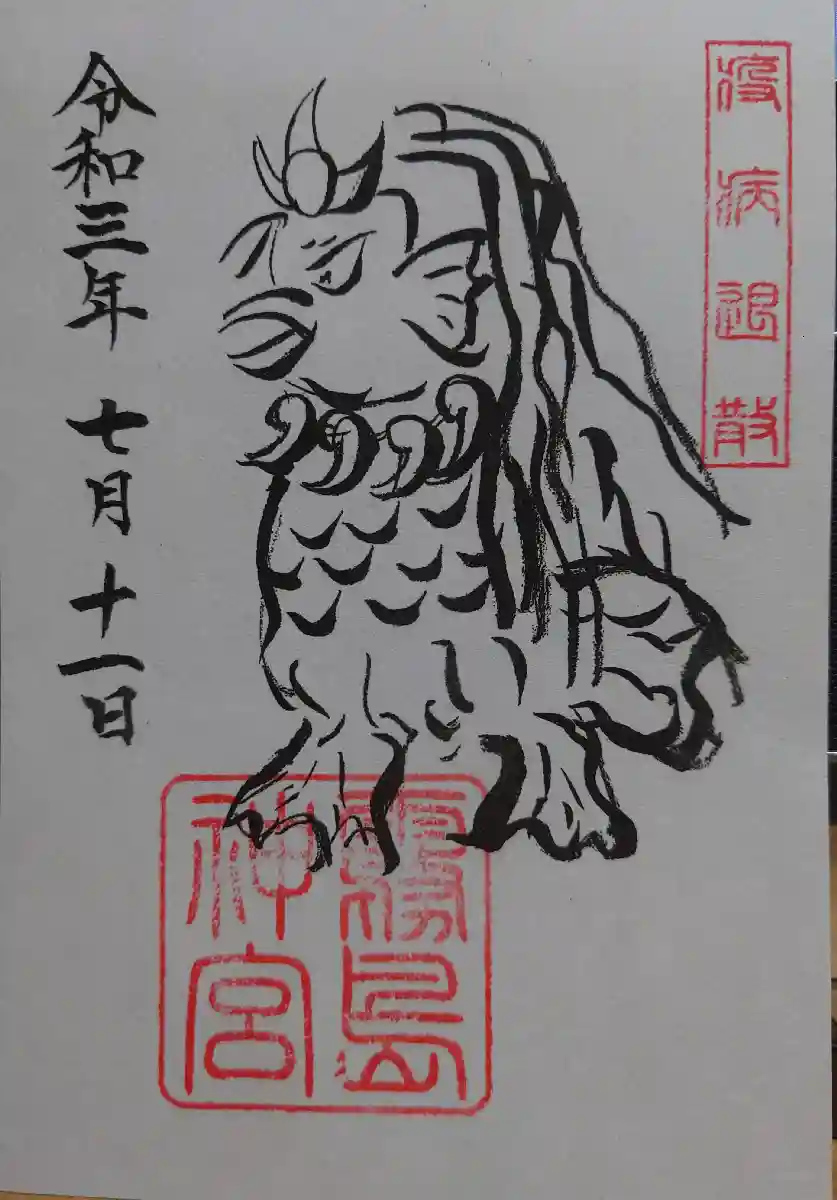 疫病退散
霧島
神宮
令和三年 七月十一日